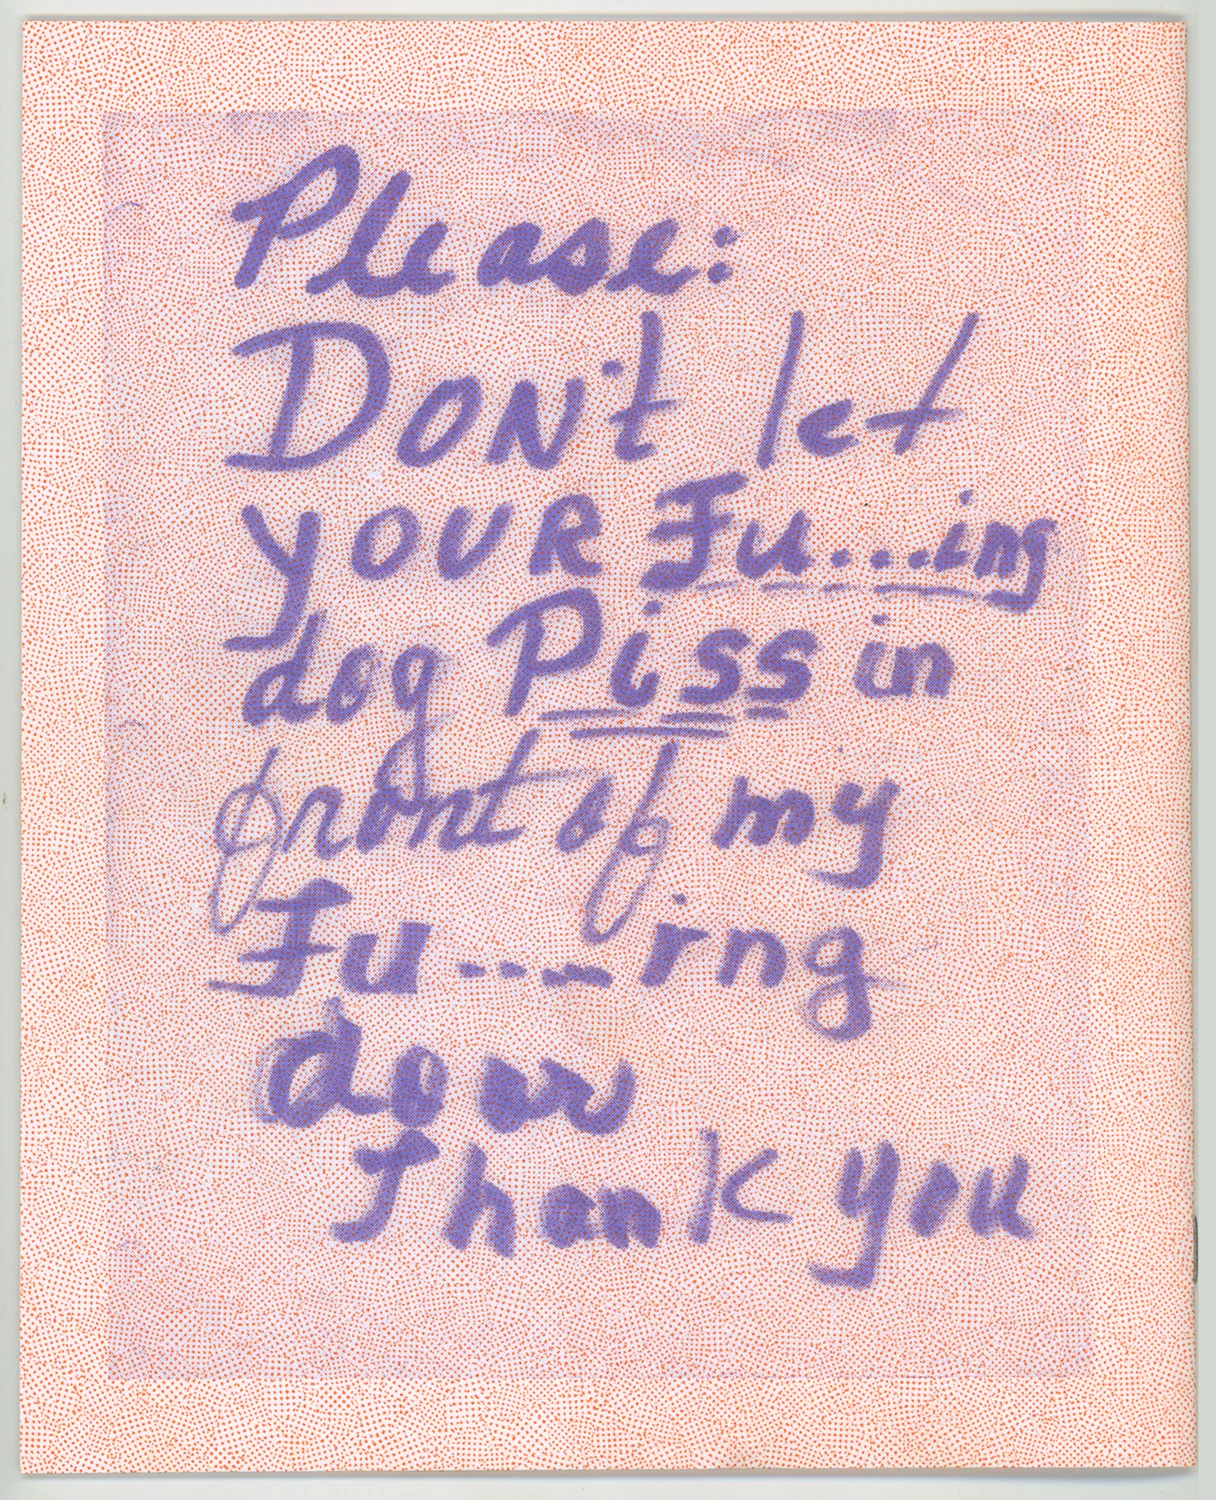 Please:
DON't let
YOUR Fu...ing
dog Piss in
front of my
Fu----ing
door
Thank you